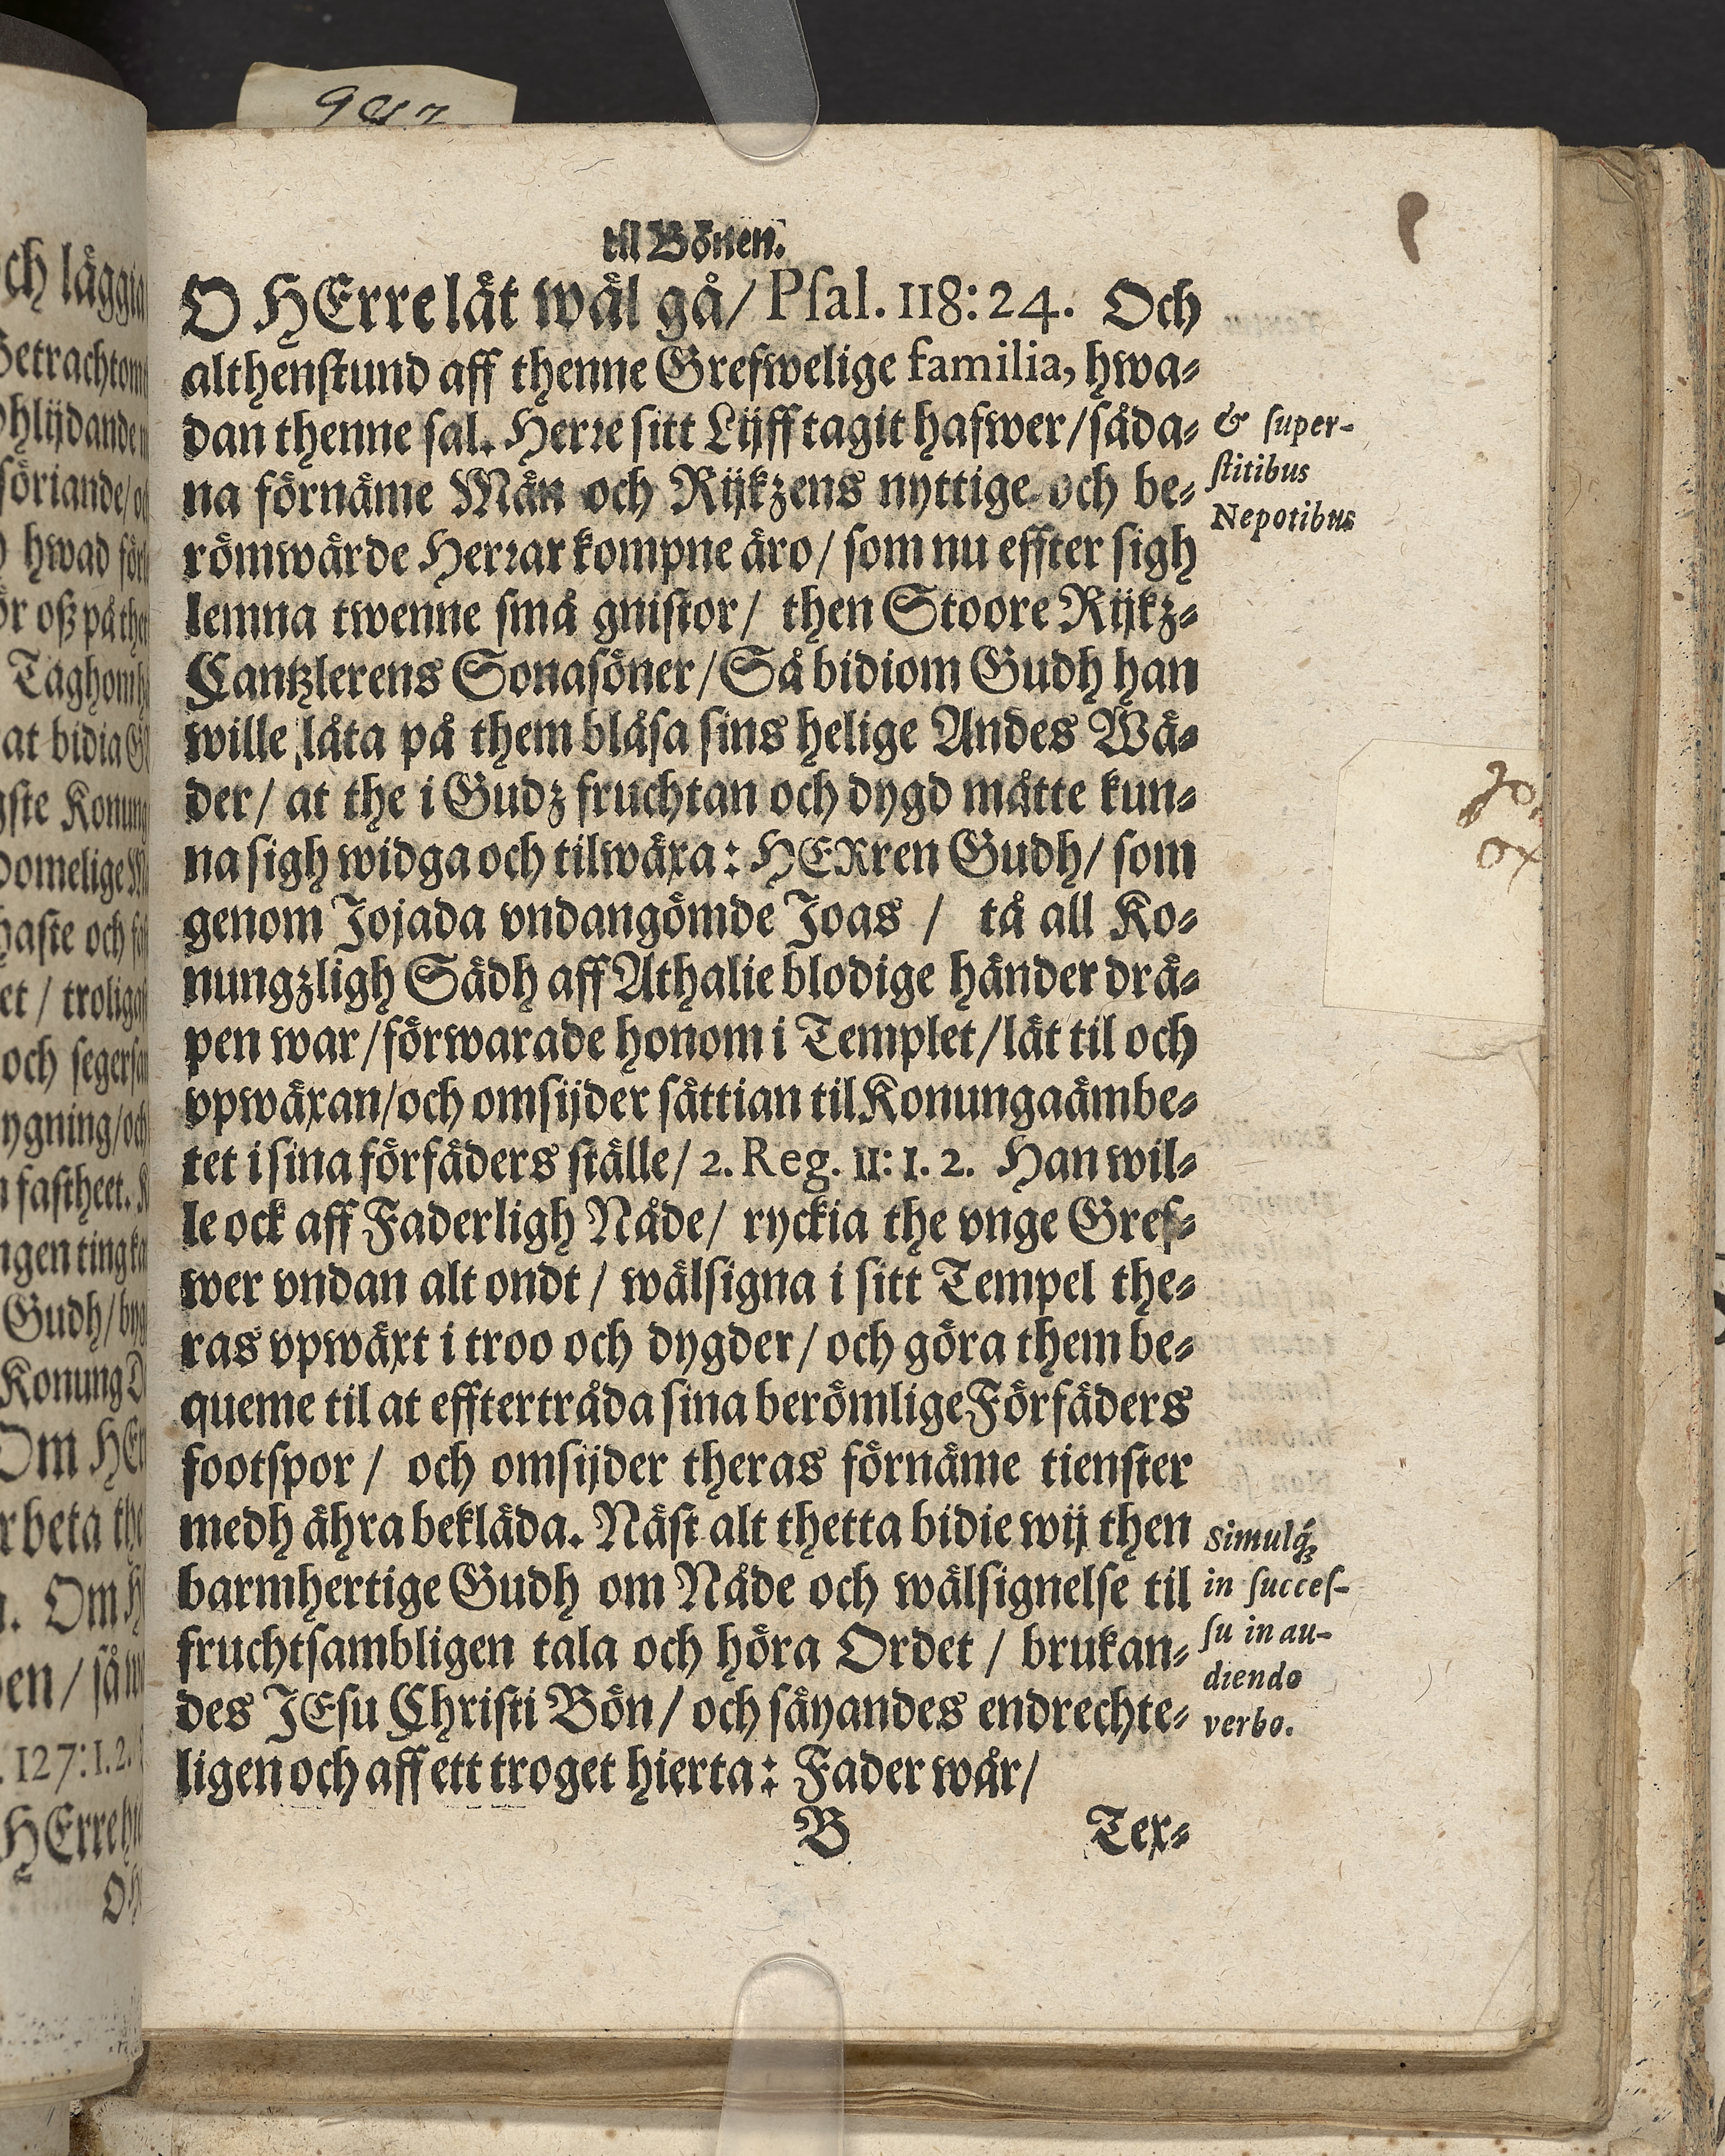 til Bönen.
O HErre lät wäl gå/ Psal. 118: 24. Och
althenstund aff thenne Grefwelige familia, hwa-
dan thenne sal. Herre sitt Lijff tagit hafwer/ såda-
na förnäme Män och Rijkzens nyttige och be-
römwärde Herrar kompne äro/ som nu effter sigh
lemna twenne små gnistor/ then Stoore Rijkz-
Cantzlerens Sonasöner/ Så bidiom Gudh han
wille låta på them blåsa sins helige Andes Wä-
der/ at the i Gudz fruchtan och dygd måtte kun-
na sigh widga och tilwäxa: HERren Gudh/ som
genom Jojada vndangömde Joas / tå all Ko-
nungzligh Sädh aff Athalie blodige händer drä-
pen war/ förwarade honom i Templet/ lät til och
vpwäxan/ och omsijder sättian til Konungaämbe-
tet i sina förfäders ställe/ 2. Reg. 11: 1. 2. Han wil-
le ock aff Faderligh Nåde/ ryckia the vnge Gref-
wer vndan alt ondt / wälsigna i sitt Tempel the-
ras vpwäxt i troo och dygder/ och göra them be-
queme til at efftertråda sina berömlige Förfäders
footspor / och omsijder theras förnäme tienster
medh ähra bekläda. Näst alt thetta bidie wij then
barmhertige Gudh om Nåde och wälsignelse til
fruchtsambligen tala och höra Ordet / brukan-
des JEsu Christi Bön/ och säyandes endrechte-
ligen och aff ett troget hierta: Fader wår/
B Tex-
& super-
stitibus
Nepotibus
Simulq́;
in succes-
su in au-
diendo
verbo.
och läggia
Betrachtom
hwad
Taghom
at bidia
Konung
haste och
et / trolig
och
ygning/ och
fastheet.
ngen ting
Gudh/
Konung
Om
rbeta the
. Om
en / så
. 127: 1. 2.
HErre